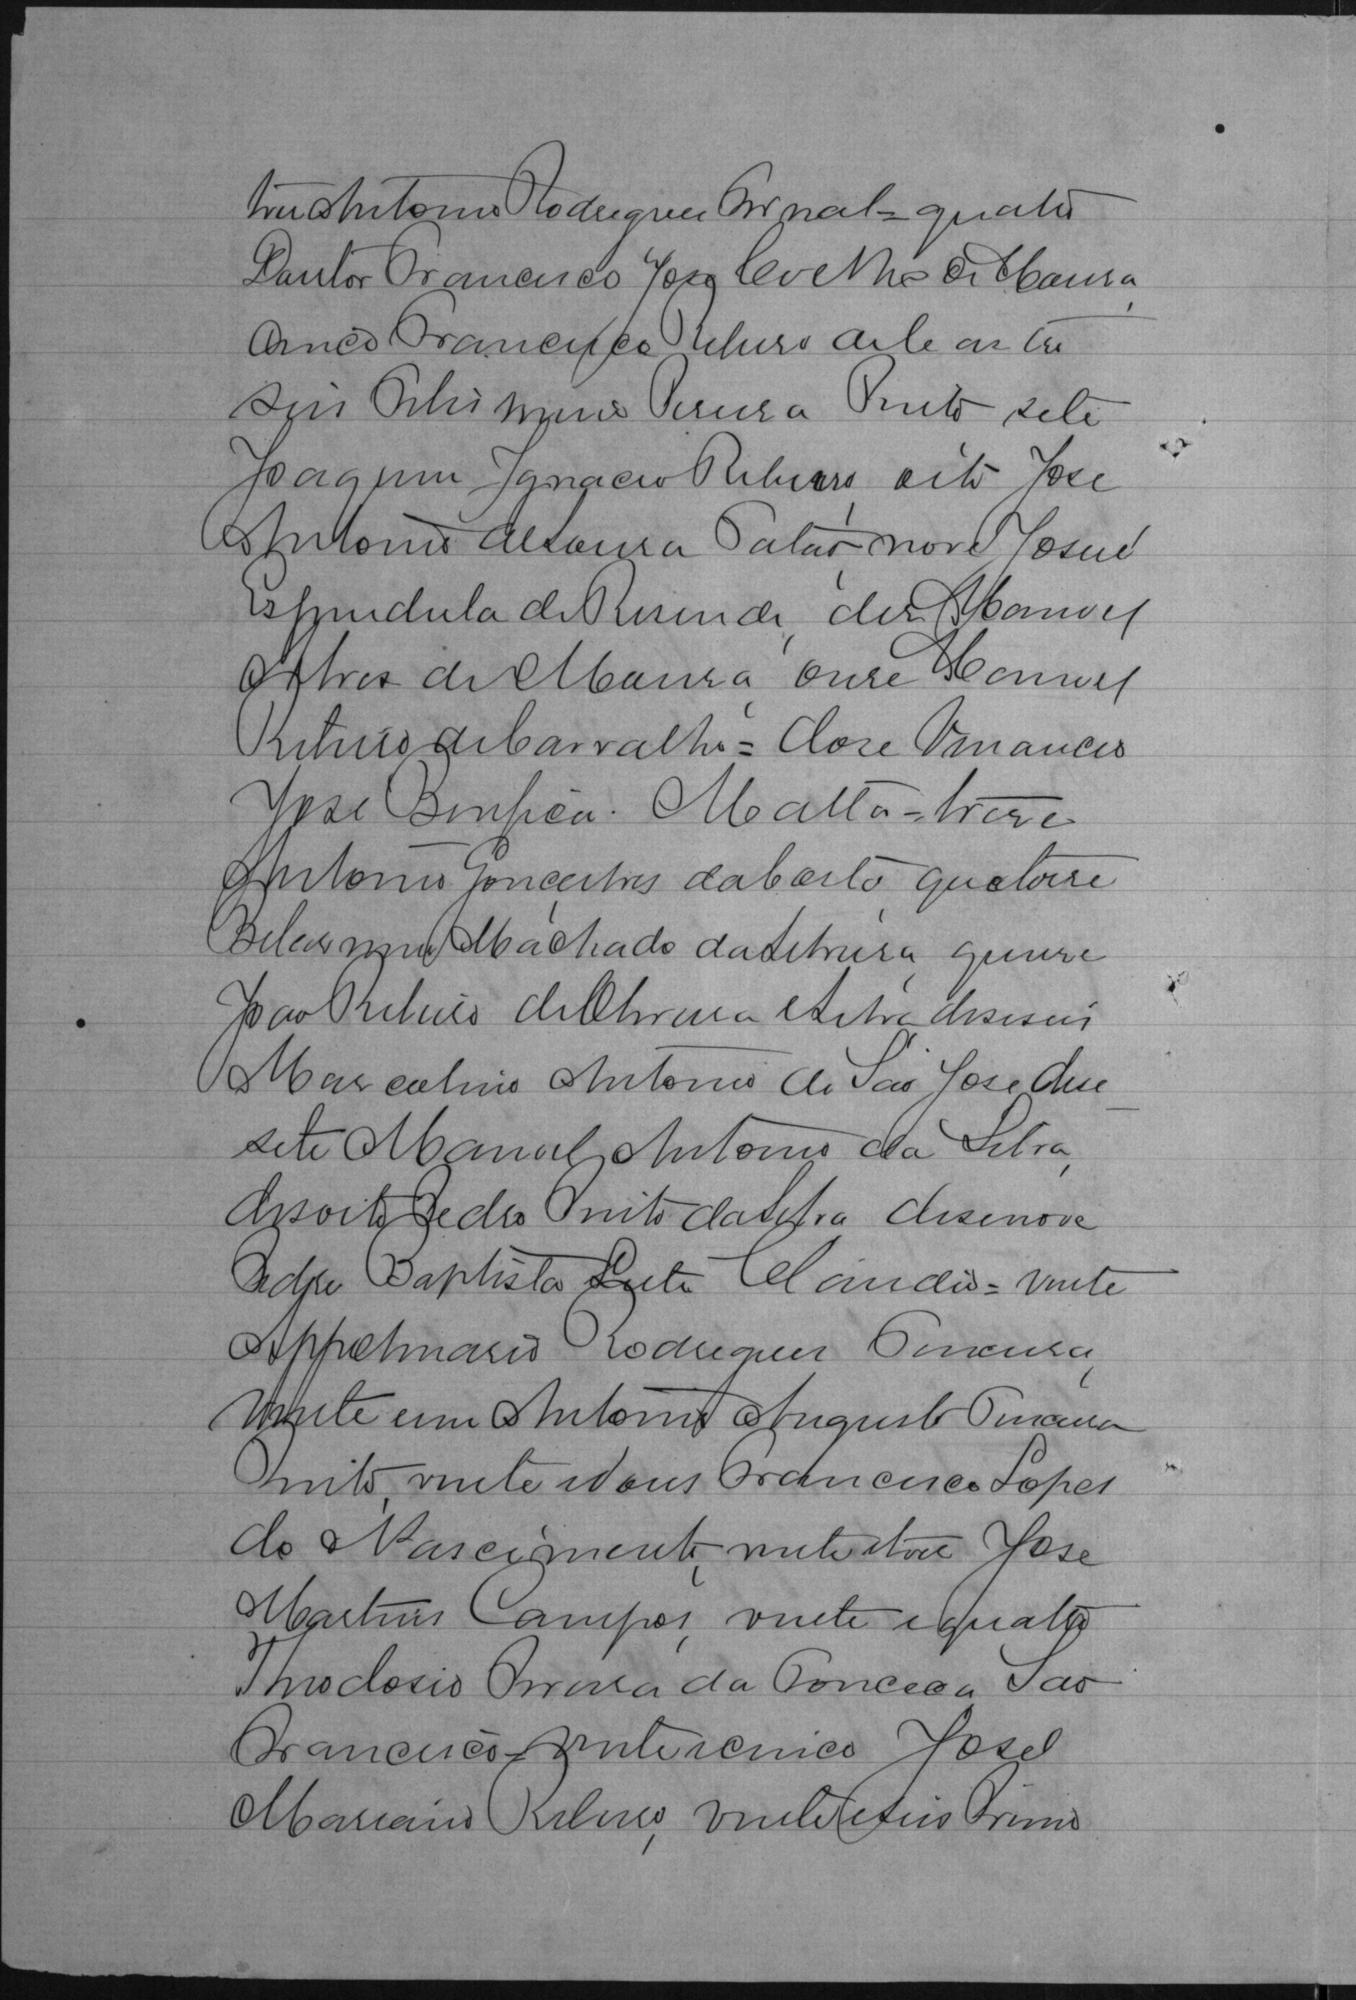 tres Antonio Rodrigues Arnal = quatro
Doutor Francisco José Coelho de Moura,
cinco Francisco Ribeiro de
seis Pereira Pinto sete
Joaquim Ignacio Ribeiro, oito José
Antonio de Souza Patão, nove Josué
Espindula de Resende, dez Manoel
Alves de Moura, onze Manoel
Ribeiro de Carvalho = doze Venancio
José Bemfica. Matta = treze
Antonio Gonçalves da Costa, quatorze
Belarmino Machado da Silveira, quinze
João Ribeiro de Oliveira e Silva deseseis
Marcolino Antonio de São José dese
sete Manoel Antonio da Silva,
desoito Pedro Pinto da Silva desenove
Pedro Baptista Leite Claudio = vinte
Appolinario Rodrigues Pinceira,
vinte e um Antonio Augusto
Pinto, vinte e dous Francisco Lopes
do Nascimento, vinte e tres José
Martins Campos, vinte e quatro
Theodosio Pereira da Fonceca São
Francisco = vinte e cinco José
Mariano Ribeiro, vinte e seis Primo